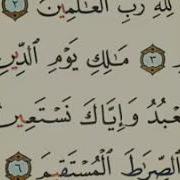 لِلَّهِ رَبِّ ٱلْعَـٰلَمِينَ ٢
٣ مَـٰلِكِ يَوْمِ ٱلدِّينِ
عْبُدُ وَإِيَّاكَ نَسْتَعِينُ
ٱلصِّرَٰطَ ٱلْمُسْتَقِيمَ ٦